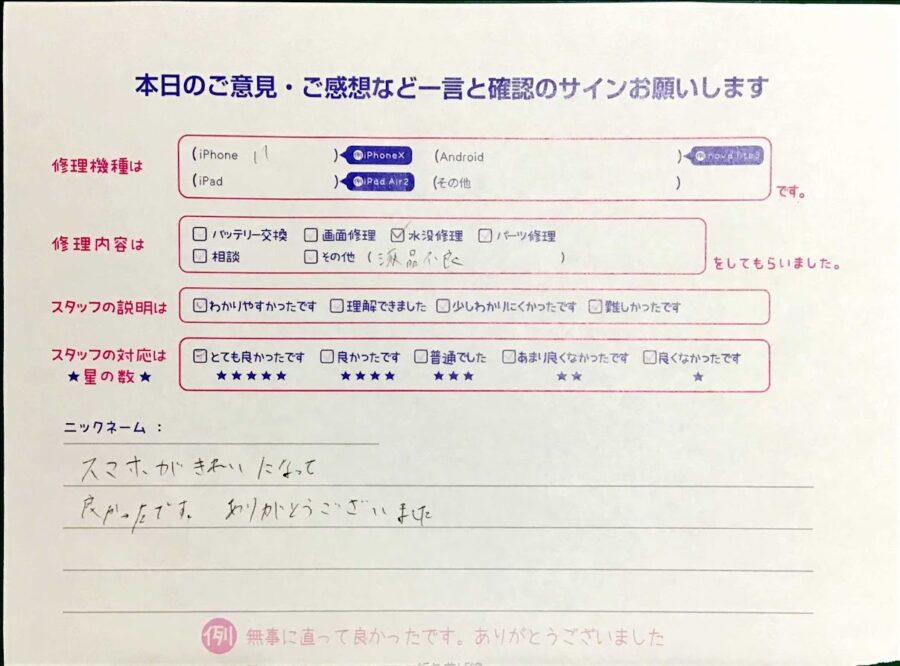 本日のご意見・ご感想など一言と確認のサインお願いします
修理機種は
(iPhone 11 ) 例iPhoneX (Android ) 例nova lite3
(iPad ) 例iPad Air2 (その他 )
です。
修理内容は
バッテリー交換 画面修理 水没修理 パーツ修理
相談 その他 (液晶不良 )
をしてもらいました。
スタッフの説明は
わかりやすかったです 理解できました 少しわかりにくかったです 難しかったです
スタッフの対応は
★星の数★
とても良かったです 良かったです 普通でした あまり良くなかったです 良くなかったです
★★★★★ ★★★★ ★★★ ★★ ★
ニックネーム：
スマホがきれいになって
良かったです。 ありがとうございました
例 無事に直って良かったです。ありがとうございました